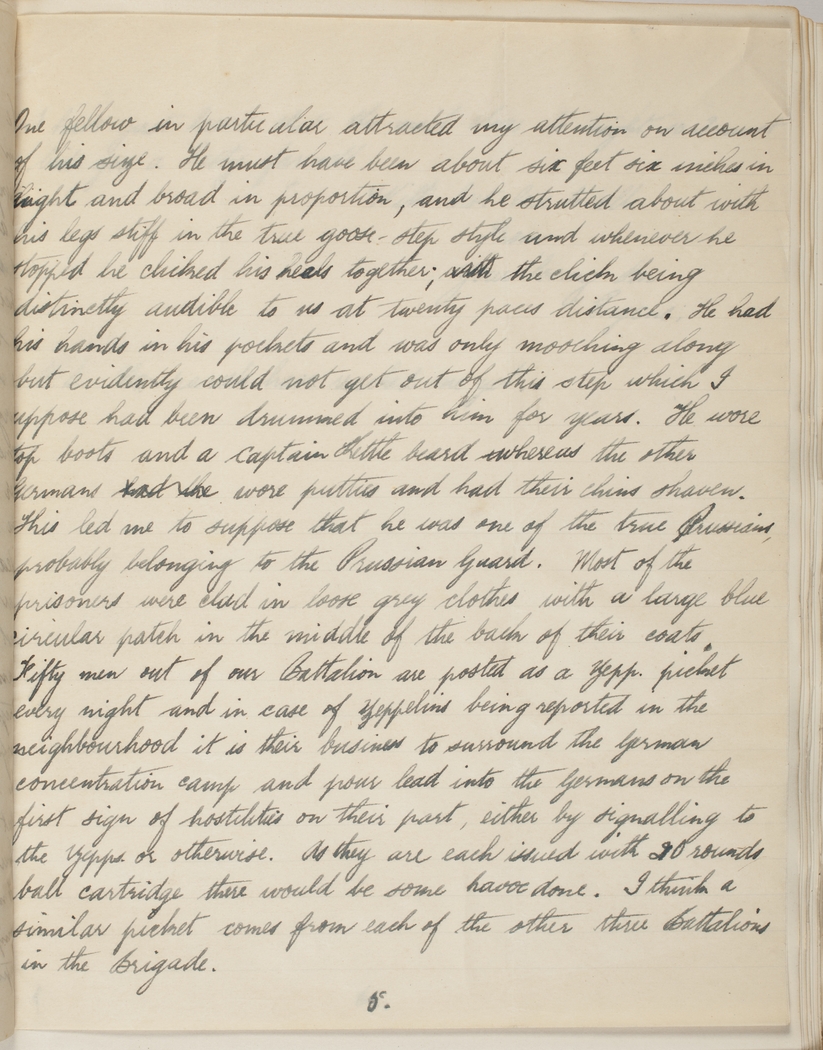 One fellow in particular attracted my attention on account
of his size. He must have been about six feet six inches in
hight and broad in proportion, and he strutted about with
his legs stiff in the true goose-step style and whenever he
stopped he clicked his heels together; with the click being
distinctly audible to us at twenty paces distance. He had
his hands in his pockets and was only mooching along
but evidently could not get out of this step which I
suppose had been drummed into him for years. He wore
top boots and a captain Kettle beard whereas the other
Germans had the wore putties and had their chins shaven.
This led me to suppose that he was one of the true Prussians,
probably belonging to the Prussian Guard. Most of the
prisoners were clad in loose grey clothes with a large blue
circular patch in the middle of the back of their coats.
Fifty men out of our Battalion are posted as a Zepp. picket
every night and in case of Zeppelins being reported in the
neighbourhood it is their business to surround the German
concentration camp and pour lead into the Germans on the
first sign of hostilities on their part, either by signalling to
the Zepps or otherwise. As they are each issued with 20 rounds
ball cartridge there would be some havoc done. I think a
similar picket comes from each of the other three Battalions
in the Brigade.
5.